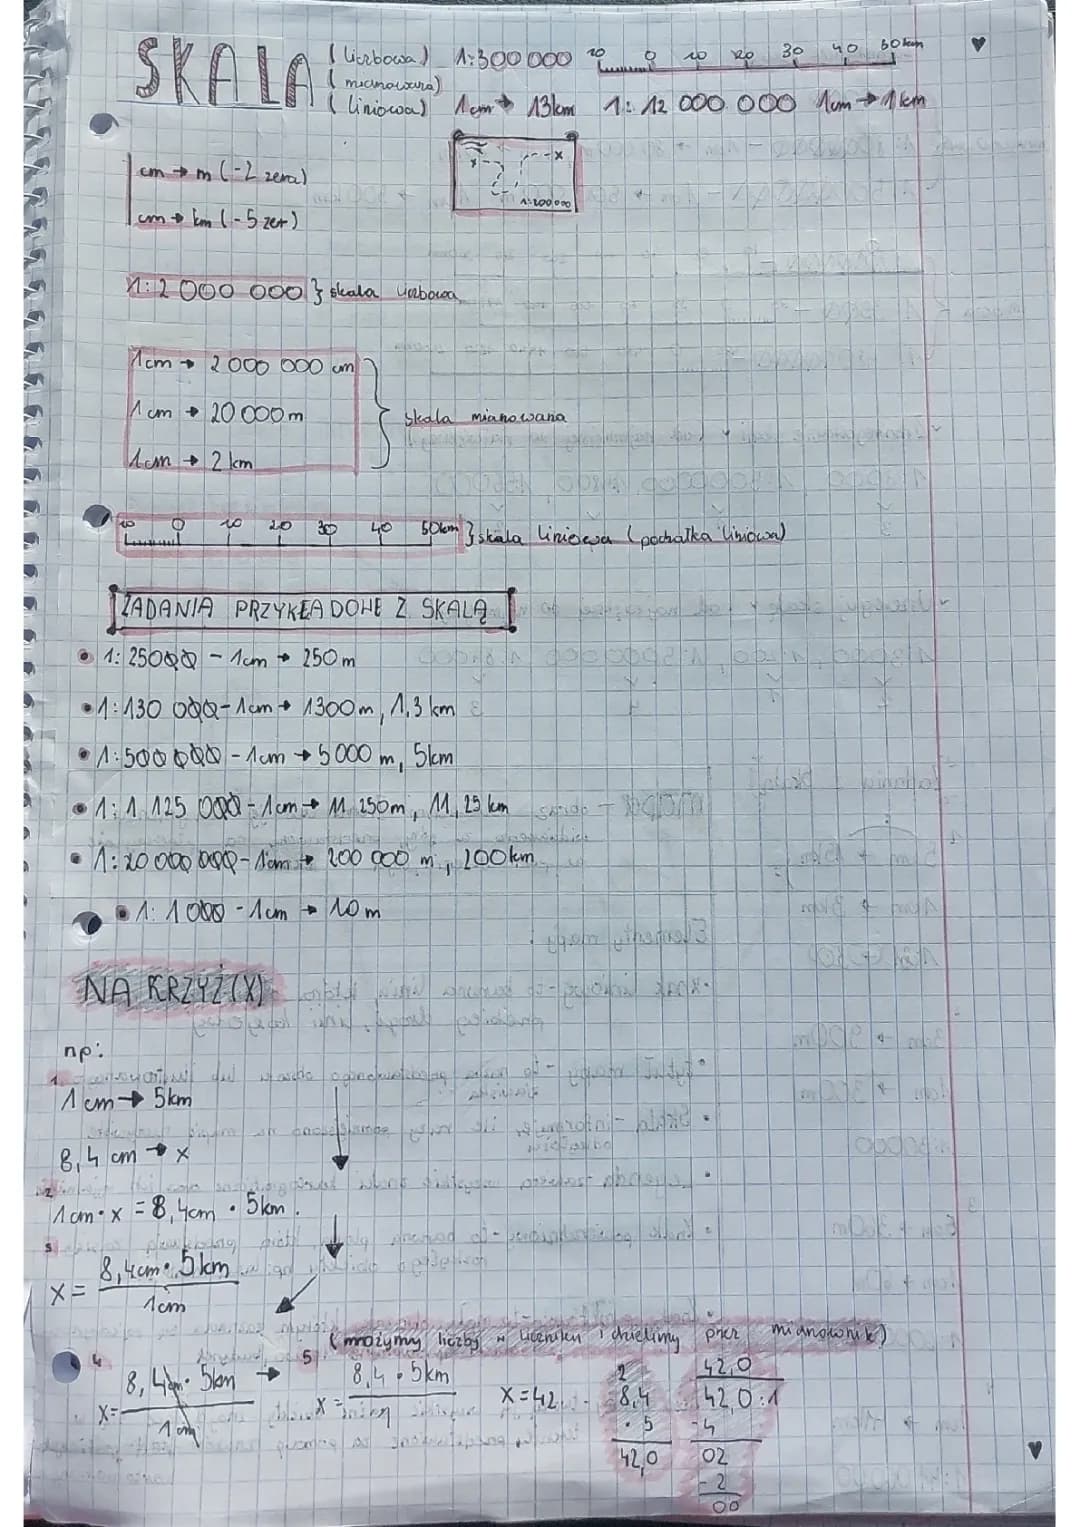 SKALA (liczbowa) 1:300 000 10 0 10 20 30 40 50km
(mianowana)
(liniowa) 1cm → 13km 1: 12 000 000 1cm → 1km
x x
1:200 000
cm → m (-2 zera)
cm → km (-5 zer)
1:2 000 000 } skala liczbowa
1cm → 2 000 000 cm
1cm → 20 000m
1cm → 2km
skala mianowana
10 0 10 20 30 40 50km } skala liniowa (podziałka liniowa)
ZADANIA PRZYKŁADOWE Z SKALĄ
• 1:25000 - 1cm → 250m
• 1:130 000 - 1cm → 1300m, 1,3 km
• 1:500 000 - 1cm → 5000 m, 5km
• 1: 1 125 000 - 1cm → 11 250m, 11,25 km
• 1:20 000 000 - 1cm → 200 000 m, 200km
• 1: 1 000 - 1cm → 10m
NA KRZYŻ (X)
np:
1.
1cm → 5km
8,4 cm → x
2
1cm · x = 8,4cm · 5km.
3
x = 8,4cm · 5km
1cm
(mnożymy liczby w liczniku i dzielimy przez mianownik)
4
x = 8,4cm · 5km →
1cm
5
x = 8,4 · 5km
1
x = 42
2
8,4
· 5
42,0
42,0
42,0 :1
-4
02
-2
00